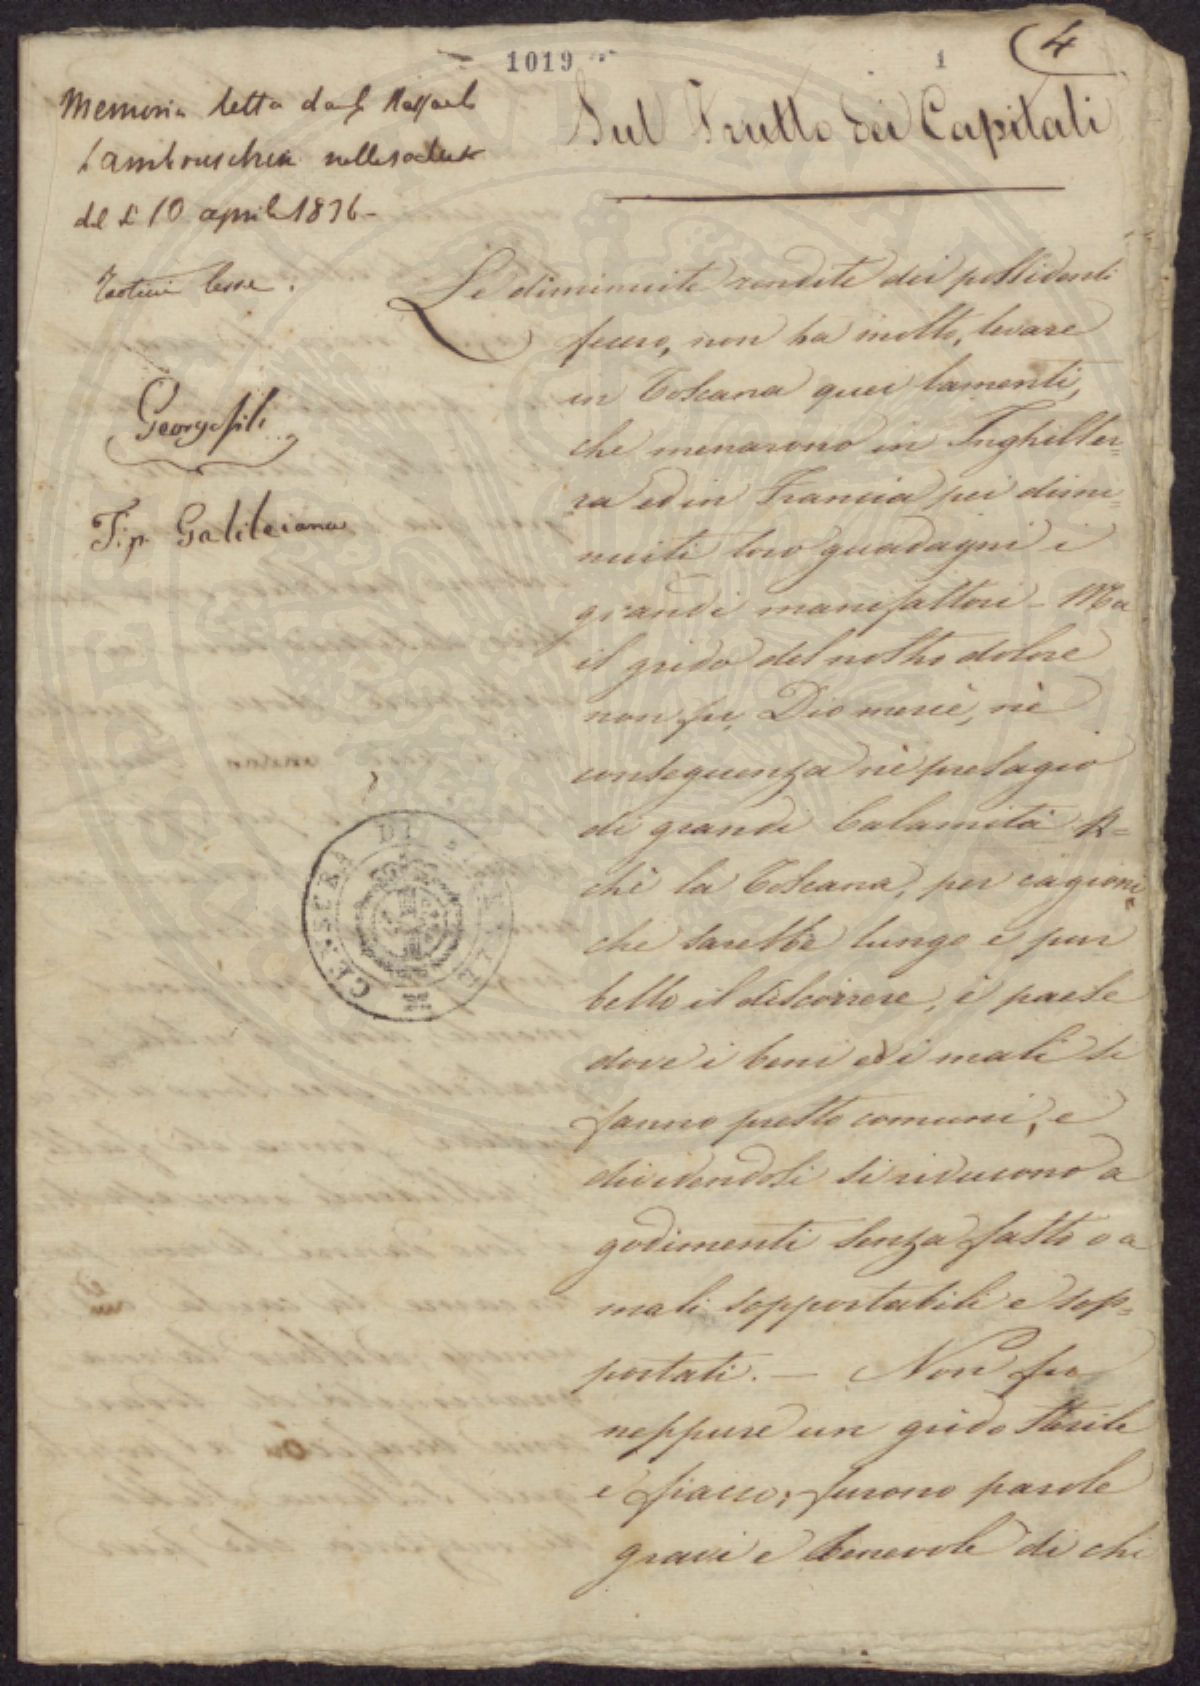 1019
1
4
Memoria letta da Raffaele
Lambruschini nella seduta
del 10 aprile 1836
Georgofili
Tip. Galileiana
Sul Frutto dei Capitali
Le diminuite rendite dei possidenti
fecero, non ha molto, levare
in Toscana quei lamenti,
che menarono in Inghilter=
ra ed in Francia pei dimi=
nuiti loro guadagni i
grandi manifattori - Ma
il grido del nostro dolore
non fu, Dio mercè, nè
conseguenza nè presagio
di grandi calamità
chè la Toscana, per cagioni
che sarebbe lungo e pur
bello il discorrere, è paese
dove i beni ed i mali si
fanno presto comuni, e
dividendosi si riducono a
godimenti senza fasto o a
mali sopportabili e sop=
portati. — Non fu
neppure un grido sterile
e fiacco; furono parole
gravi e benevole di chi
CENSURA DI